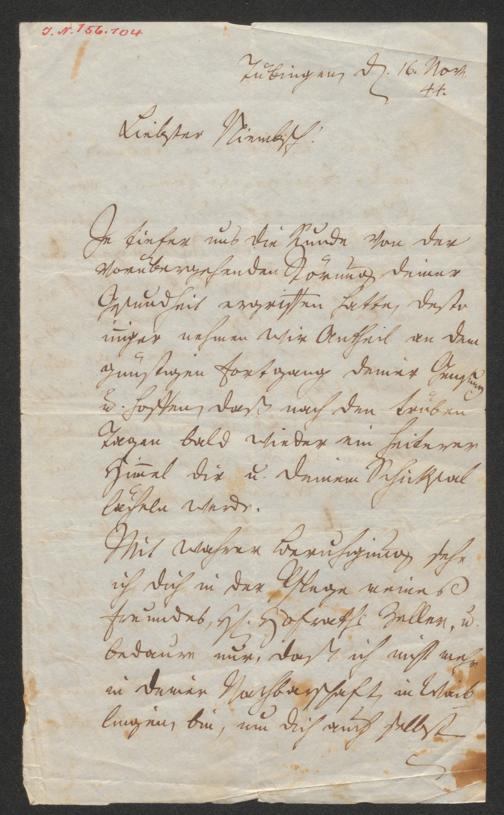 J. N. 156.704
Tübingen, d. 16. Nov.
44.
Liebster Niembsch!
Je tiefer uns die Kunde von der
vorübergehenden Störung deiner
Gesundheit ergriffen hatte, desto
inniger nehmen wir Antheil an dem
günstigen Fortgang deiner Genesung
u. hoffen, daß nach den trüben
Tagen bald wieder ein heiterer
Himmel dir u. deinem Schicksal
lächeln werde.
Mit wahrer Beruhigung sehe
ich dich in der Pflege meines
Freundes, H. Hofrath Zeller, u.
bedaure nur, daß ich nicht mehr
in deiner Nachbarschaft, in Waib
lingen, bin, um dich auch selbst